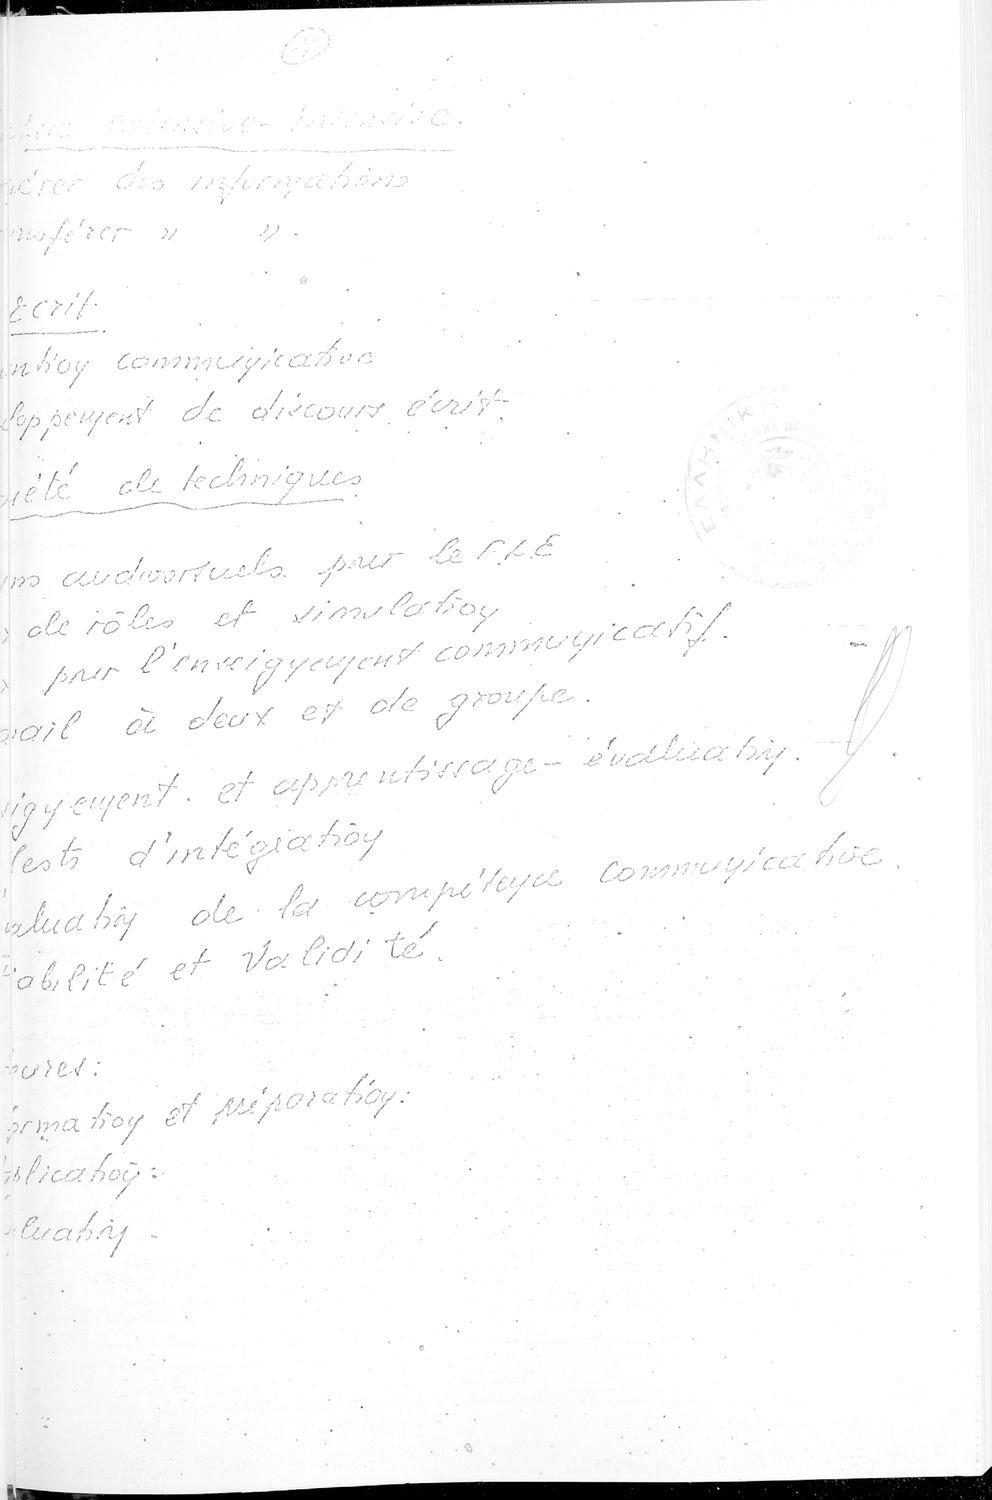 extensive - intensive.
des informations
nsférer " " .
Ecrit.
communicative
loppement de discours écrit.
iété de techniques
audiovisuels pour le FLE
de rôles et simulation
pour l'enseignement communicatif.
vail à deux et de groupe.
ignement. et apprentissage - évaluation.
tests d'intégration
valuation de la compétence communicative.
iabilité et Validité.
eures:
ormation et préparation:
plication:
luation.
ΕΛΛΗΝΙΚ